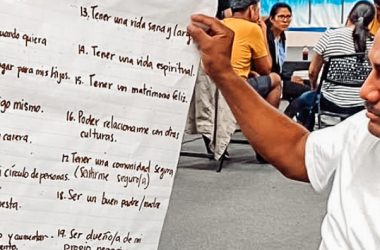 13. Tener una vida sana y larg
uando quiera
14. Tener una vida espiritual.
gar para mis hijos.
15. Tener un matrimonio feliz.
igo mismo.
16. Poder relacionarme con otras
culturas.
casera.
17. Tener una comunidad segura,
i círculo de personas. (Sentirme seguro/a)
18. Ser un buen padre/madre
esta.
o y aumentar.
19. Ser dueño/a de mi
ento.
propio